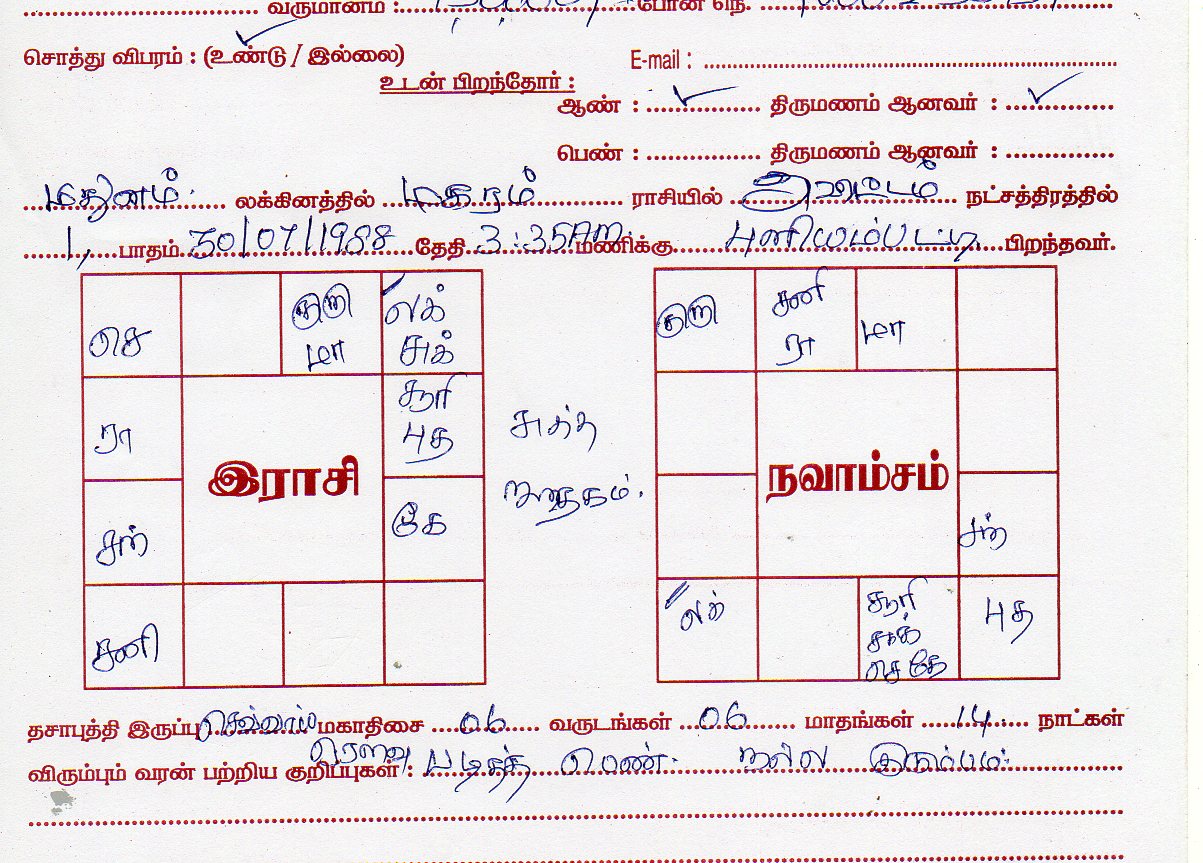 வருமானம் : போன் நெ.
சொத்து விபரம் : (உண்டு / இல்லை) E-mail :
உடன் பிறந்தோர் :
ஆண் : திருமணம் ஆனவர் :
பெண் : திருமணம் ஆனவர் :
மிதுனம் லக்கினத்தில் மகரம் ராசியில் அவிட்டம் நட்சத்திரத்தில்
1, பாதம் 30/07/1988 தேதி 3:35AM மணிக்கு புளியம்பட்டி பிறந்தவர்.
செ குரு மா லக் சுக்
குரு சனி ரா மா
ரா சூரி புத
சுத்த
இராசி
நவாம்சம்
ஜாதகம்.
சந் கே
சந்
சனி
லக் சூரி சுக் செ கே புத
தசாபுத்தி இருப்பு செவ்வாய் மகாதிசை 06 வருடங்கள் 06 மாதங்கள் 14 நாட்கள்
விரும்பும் வரன் பற்றிய குறிப்புகள் : படித்த பெண். நல்ல குடும்பம்.